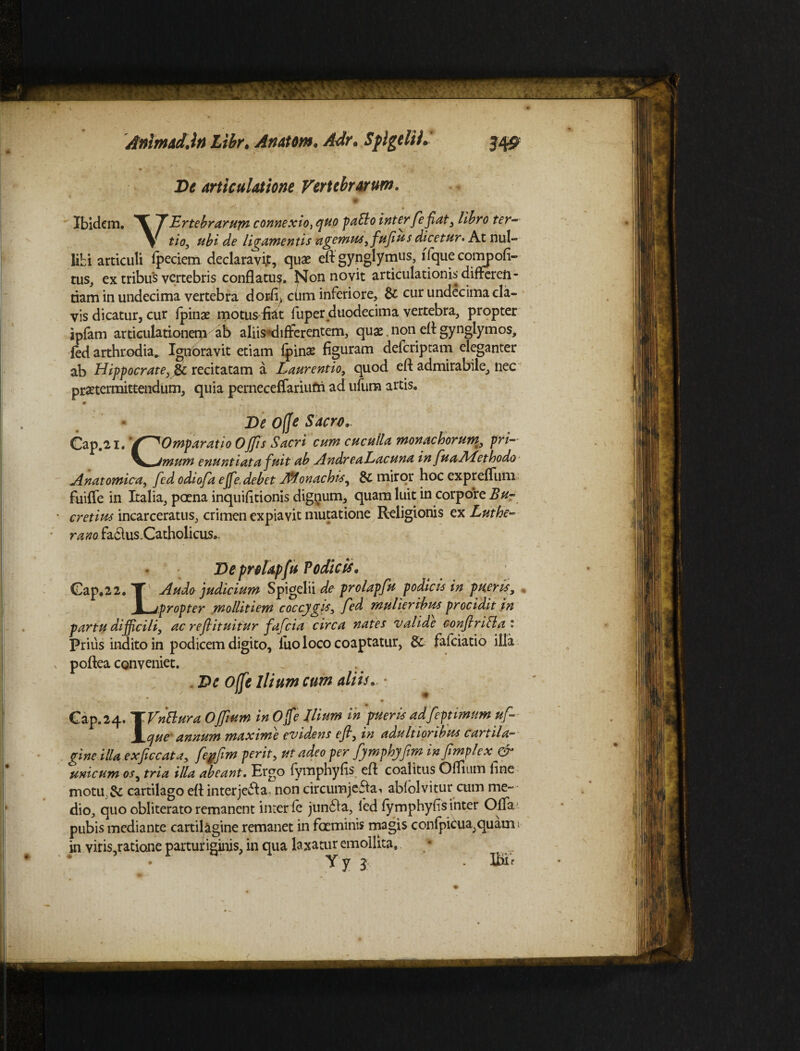 Animad.in Libr. Anatom. Adr. Spigelii. 349
De articulatione Vertebrarum.
Ibidem. VErtebrarum connexio, quo pacto inter se fiat, libro ter-
tio, ubi de ligamentis agemus, fusius dicetur. At nul-
libi articuli speciem declaravit, quæ est gynglymus, isque composi-
tus, ex tribus vertebris conflatus. Non novit articulationis differen-
tiam in undecima vertebra dorsi, cum inferiore, & cur undecima cla-
vis dicatur, cur spinæ motus fiat super duodecima vertebra, propter
ipsam articulationem ab aliis differentem, quæ non est gynglymos,
sed arthrodia. Ignoravit etiam spinæ figuram descriptam eleganter
ab Hippocrate, & recitatam à Laurentio, quod est admirabile, nec
prætermittendum, quia pernecessarium ad usum artis.
De Osse Sacro.
Cap.21. COmparatio Ossis Sacri cum cuculla monachorum, pri-
mum enuntiata fuit ab Andrea Lacuna in sua Methodo
Anatomica, sed odiosa esse debet Monachis, & miror hoc expressum
fuisse in Italia, pœna inquisitionis dignum, quam luit in corpore Bu-
cretius incarceratus, crimen expiavit mutatione Religionis ex Luthe-
rano factus Catholicus.
De prolapsu Podicis.
Cap.22. LAudo judicium Spigelii de prolapsu podicis in pueris,
propter mollitiem coccygis, sed mulieribus procidit in
partu difficili, ac restituitur fascia circa nates valide constricta :
Prius indito in podicem digito, suo loco coaptatur, & fasciatio illa
postea conveniet.
De Osse Ilium cum aliis.
Cap.24. IVnctura Ossium in Osse Ilium in pueris ad septimum us-
que annum maxime evidens est, in adultioribus cartila-
gine illa exsiccata, sensim perit, ut adeo per symphysim in simplex &
unicum os, tria illa abeant. Ergo symphysis est coalitus Ossium sine
motu, & cartilago est interjecta non circumjecta, absolvitur cum me-
dio, quo obliterato remanent inter se juncta, sed symphysis inter Ossa
pubis mediante cartilagine remanet in fœminis magis conspicua, quam
in viris, ratione parturiginis, in qua laxatur emollita.
Yy 3 Ibi-